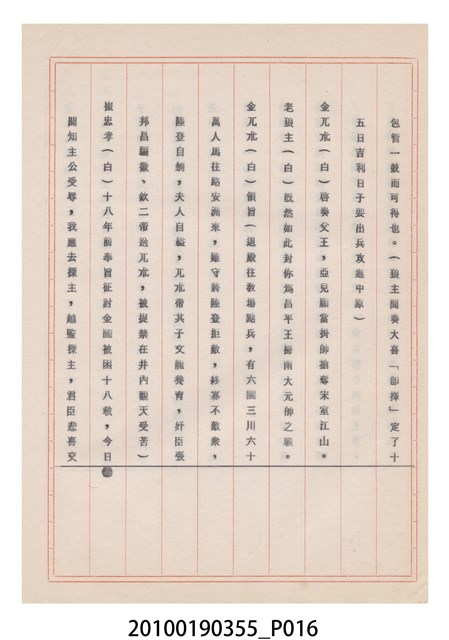 包管一鼓而可得也。(狼主聞奏大喜「即擇」定了十
五日吉利日子要出兵攻進中原)
金兀朮(白)啓奏父王,臣兒願當掛帥搶奪宋室江山。
老狼主(白)既然如此封你爲昌平王掃南大元帥之職。
金兀朮(白)領旨(退殿往教場點兵,有六國三川六十
萬人馬往路安洲來,雖守將陸登拒敵,終寡不敵衆,
陸登自刎,夫人自縊,兀朮帶其子文龍養育,奸臣張
邦昌騙徽、欽二帝送兀朮,被捉禁在井內觀天受苦)
崔忠孝(白)十八年前奉旨征討金國被困十八載,今日
聞知主公受辱,我應去探主,越監探主,君臣悲喜交
20100190355_P016